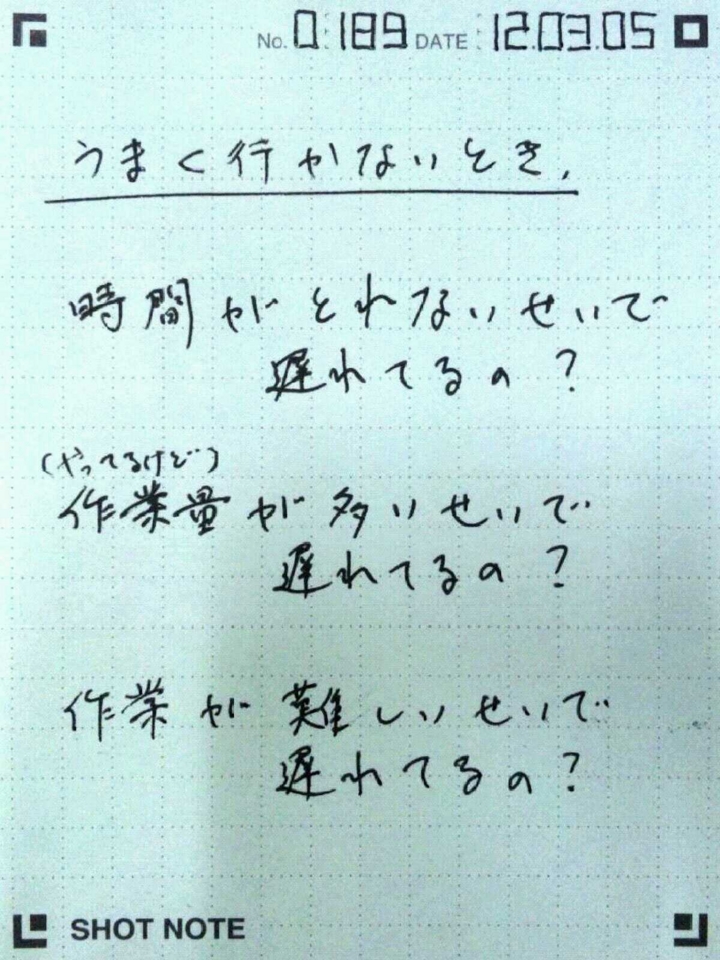 No. 0189 DATE 12.03.05
うまく行かないとき、
時間がとれないせいで
遅れてるの?
(やってるけど)
作業量が多いせいで
遅れてるの?
作業が難しいせいで
遅れてるの?
SHOT NOTE